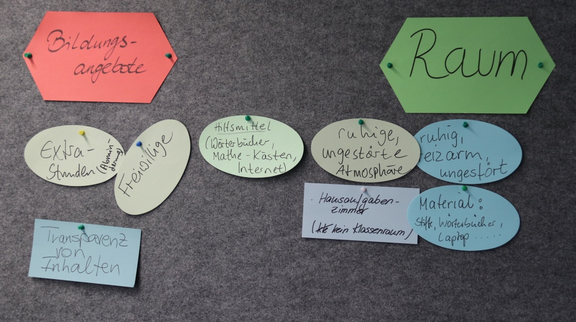 Bildungs-
angebote
Raum
Extra-
Stunden
Freiwillige
Hilfsmittel
(Wörterbücher,
Mathe-Kästen,
Internet)
ruhige,
ungestörte
Atmosphäre
ruhig,
reizarm,
ungestört
Hausaufgaben-
zimmer
kein Klassenraum)
Material:
Stifte, Wörterbücher,
Laptop.....
Transparenz
von
Inhalten